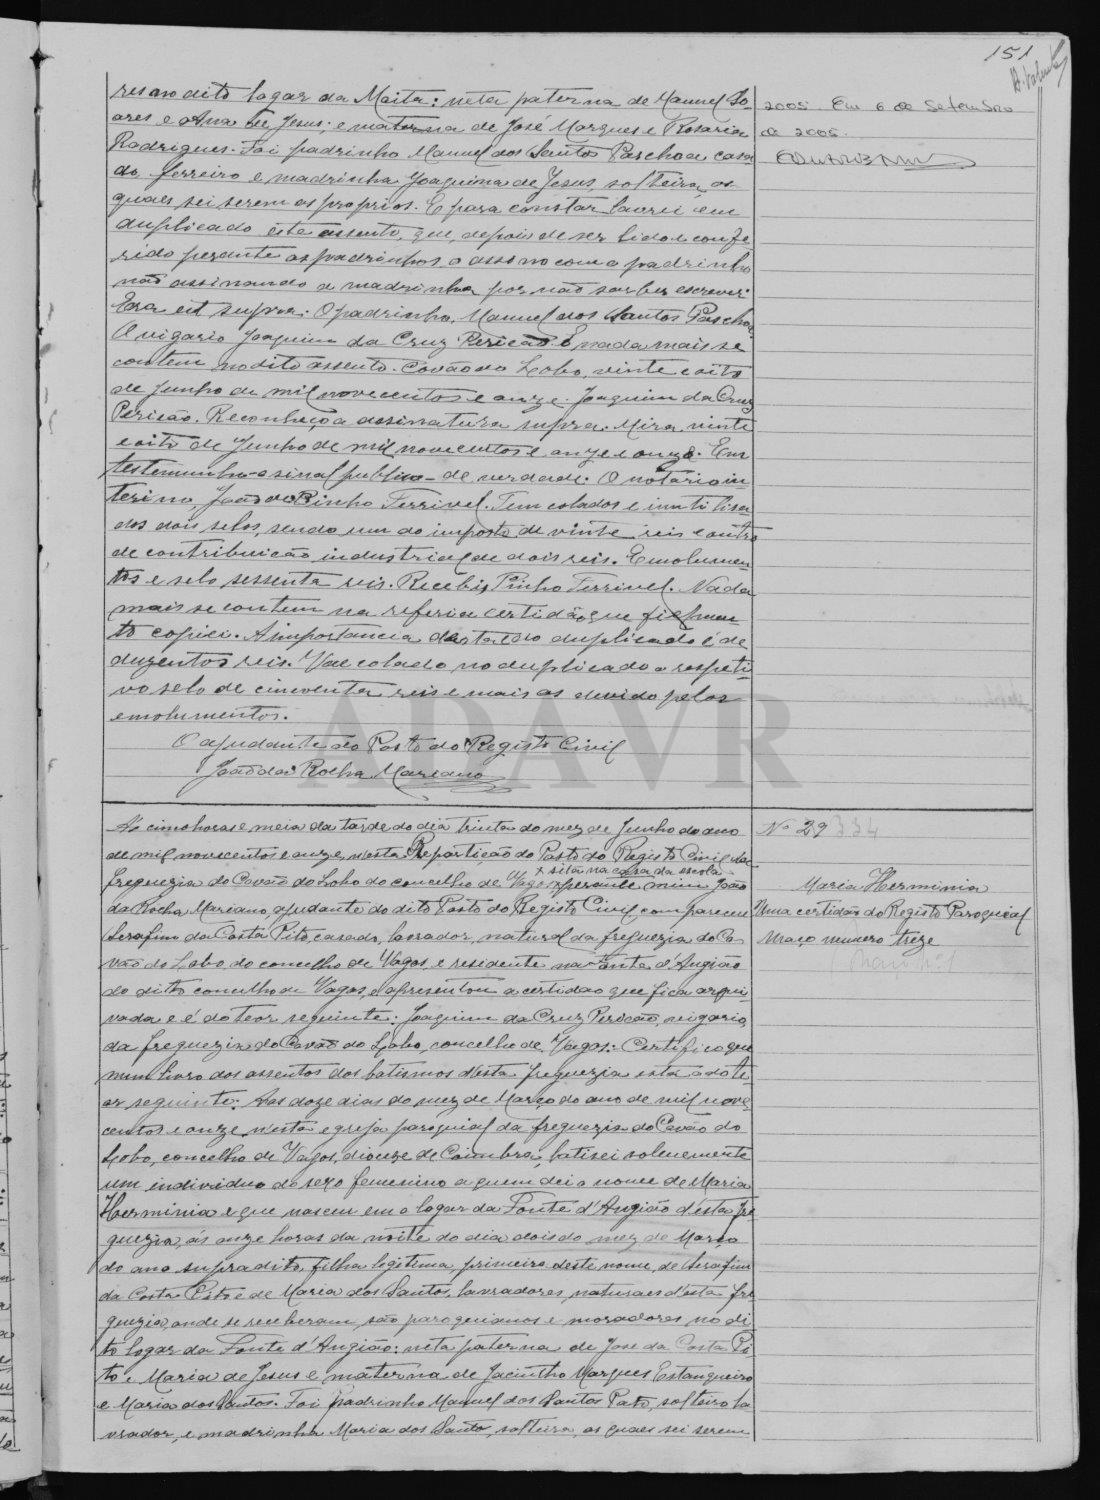 151
resmo dito logar da Moita: neta paterna de Manuel So-
ares e Ana de Jesus; e materna de José Marques e Rosaria
Rodrigues. Foi padrinho Manuel dos Santos Paschoa casa-
do, ferreiro e madrinha Joaquina de Jesus, solteira, os
quaes sei serem os proprios. E para constar lavrei em
duplicado este assento, que, depois de ser lido e confe-
rido perante os padrinhos, o assino com o padrinho
não assinando a madrinha por não saber escrever.
Era ut supra. O padrinho, Manuel dos Santos Paschoa
O vigario Joaquim da Cruz Pericão. E nada mais se
contem no dito assento. Covão do Lobo, vinte e oito
de Junho de mil novecentos e onze. Joaquim da Cruz
Pericão. Reconheço a assinatura supra. Mira, vinte
e oito de Junho de mil novecentos e onze e onze. Em
testemunho o sinal publico de verdade. O notario in-
terino, João de Pinho Terrivel. Tem colados e inutilisa-
dos dois selos, sendo um do imposto de vinte reis e outro
de contribuição industrial de dois reis. Emolumen-
tos e selo sessenta reis. Recebi, Pinho Terrivel. Nada
mais se contem na referia certidão, que fielmen-
te copiei. A importancia desta e do duplicado é de
duzentos reis. Vae colado no duplicado o respeti-
vo selo de cincoenta reis e mais os devido pelos
emolumentos.
O ajudante do Posto do Registo Civil
João da Rocha Mariano
2005. Em 6 de Setembro
de 2005.
ADAVR
Ás cinco horas e meia da tarde do dia trinta do mez de Junho do ano
de mil novecentos e onze, nesta Repartição do Posto do Registo Civil da
x sita na casa da escola
freguezia do Covão do Lobo do concelho de Vagos x perante mim João
da Rocha Mariano, ajudante do dito Posto do Registo Civil compareceu
Serafim da Costa Pito, casado, lavrador, natural da freguezia do Co-
vão do Lobo, do concelho de Vagos, e residente na Fonte d'Angião
do dito concelho de Vagos, e apresentou a certidão que fica arqui-
vada e é do teor seguinte: Joaquim da Cruz Pericão, vigario
da freguezia do Covão do Lobo, concelho de Vagos: Certifico que
num livro dos assentos dos batismos d'esta freguezia está o do te-
or seguinte: Aos doze dias do mez de Março do ano de mil nove-
centos e onze, n'esta egreja paroquial da freguezia do Covão do
Lobo, concelho de Vagos, diocese de Coimbra, batisei solenemente
um individuo do sexo femenino a quem dei o nome de Maria
Herminia e que nasceu em o logar da Fonte d'Angião d'esta fre-
guezia, ás onze horas da noite do dia dois do mez de Março
do ano supradito, filha legitima, primeira deste nome, de Serafim
da Costa Pito e de Maria dos Santos, lavradores, naturaes d'esta fre-
guezia, onde se receberam, são paroquianos e moradores, no di-
to logar da Fonte d'Angião: neta paterna de José da Costa Pi-
to e Maria de Jesus e materna de Jacintho Marques Estanqueiro
e Maria dos Santos. Foi padrinho Manuel dos Santos Pato, solteiro la-
vrador, e madrinha Maria dos Santo, solteira, os quaes sei serem
Nº 29 334
Maria Herminia
Uma certidão do Registo Paroquial
Maço numero treze